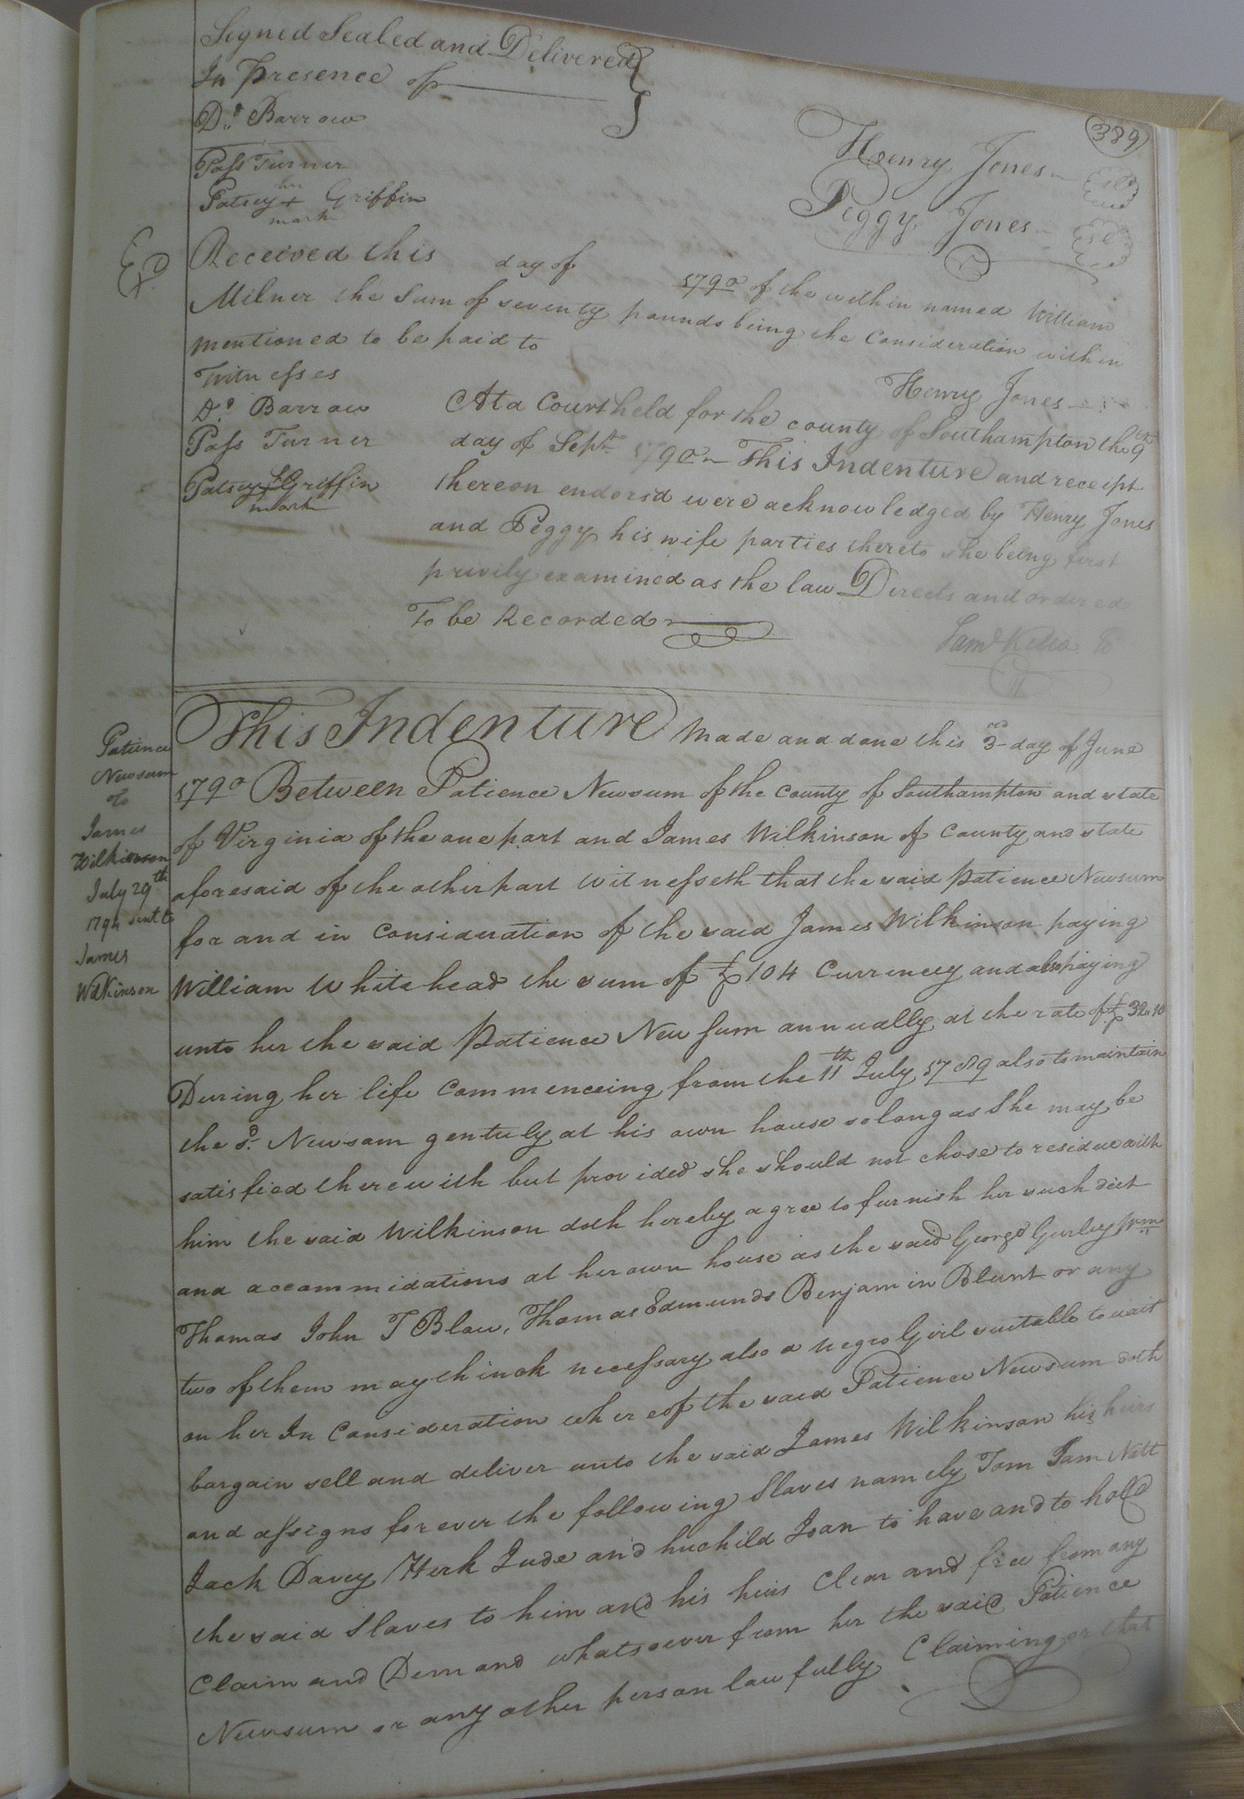 389
Signed Sealed and Delivered
In presence of
Do. Barrow
Pass Turner
her
Patsey + Griffin
mark
Henry Jones
Peggy Jones
Exd
Received this day of 1790 of the within named William
Milner the Sum of seventy pounds being the Consideration within
mentioned to be paid to
Henry Jones
Witnesses
Do. Barrow
Pass Turner
Patsey + Griffin
mark
At a Court held for the county of Southampton the 9
day of Sept. 1790 This Indenture and receipt
thereon endorsd were acknowledged by Henry Jones
and Peggy his wife parties thereto she being first
privily examined as the law Directs and ordered
To be Recorded
Saml Kello
Patience
Newsum
to
James
Wilkinson
July 29th
1794 sent to
James
Wilkinson
This Indenture Made and done this 3 day of June
1790 Between Patience Newsum of the County of Southampton and state
of Virginia of the one part and James Wilkinson of County and state
aforesaid of the other part Witnesseth that the said Patience Newsum
for and in Consideration of the said James Wilkinson paying
William Whitehead the sum of £104 Currencey and also paying
unto her the said Patience Newsum annually at the rate of £32..10
During her life Commenceing from the 11th July 1789 also to maintain
the sd. Newsam genteely at his own house so long as She may be
satisfied therewith but provided she should not chose to residue with
him the said Wilkinson doth hereby agree to furnish her such diet
and accommidations at her own house as the said George Gurley Wm
Thomas John T Blow, Thomas Edmunds Benjamin Blunt or any
two of them may thinck necessary also a negro Girl suitable to wait
on her In Consideration whereof the said Patience Newsum doth
bargain sell and deliver unto the said James Wilkinson his heirs
and assigns for ever the following Slaves namely Tom Sam Nett
Jack Davey Herk Jude and huchild Joan to have and to hold
the said Slaves to him and his heirs Clear and free from any
Claim and Demand whatsoever from her the said Patience
Newsum or any other person lawfully Claiming or that